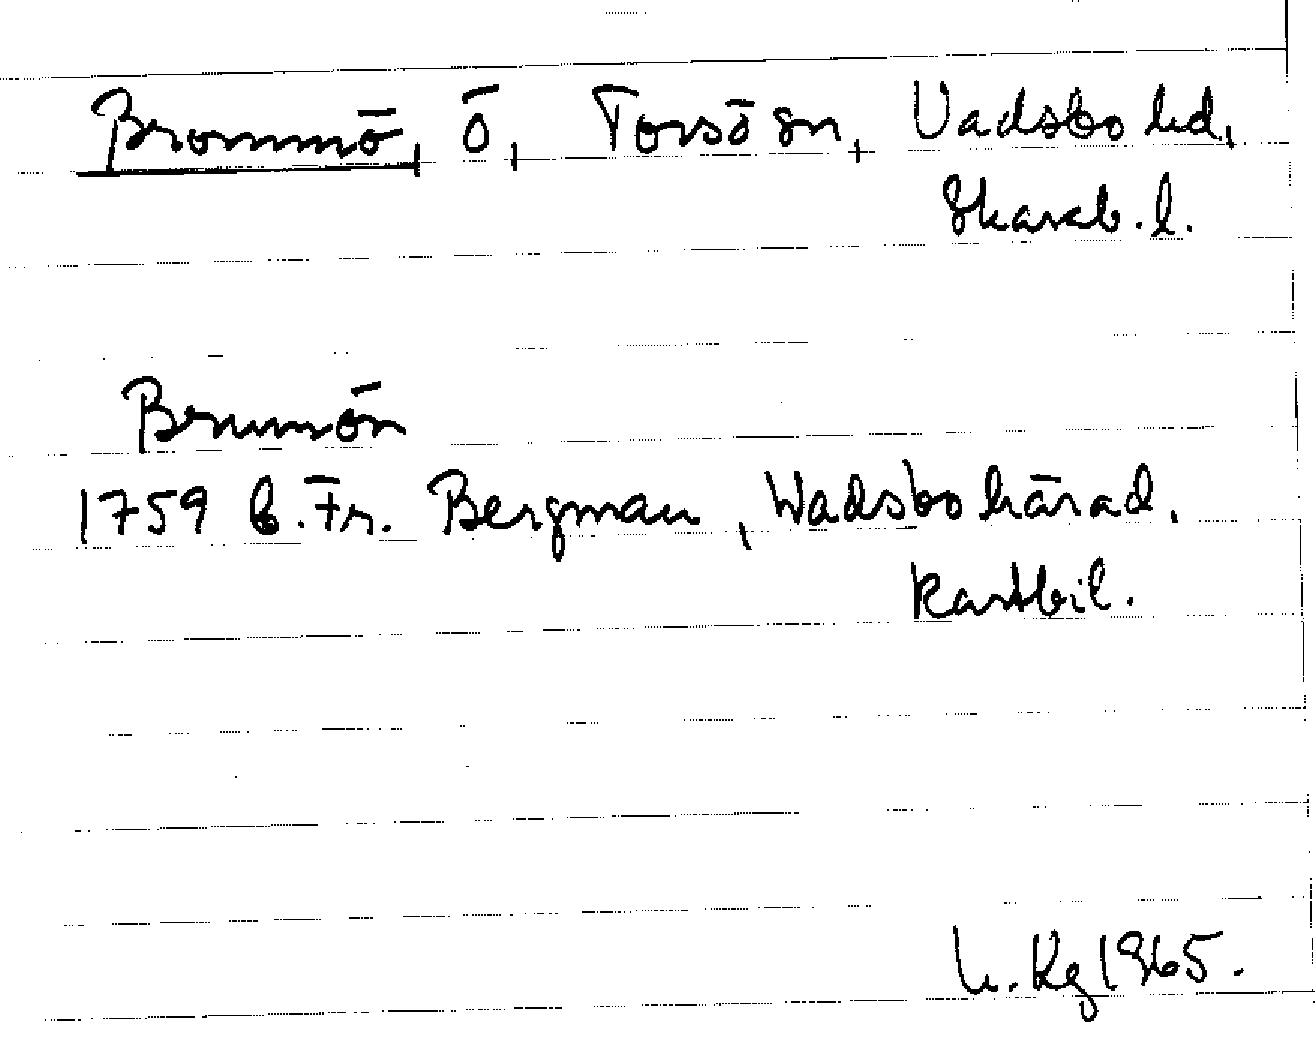 Brommö, Ö, Torsö sn, Vadsbo hd,
Skarab. l.
Brumön
1759 C. Fr. Bergman, Wadsbo härad.
Kartbil.
L. Kg 1965.